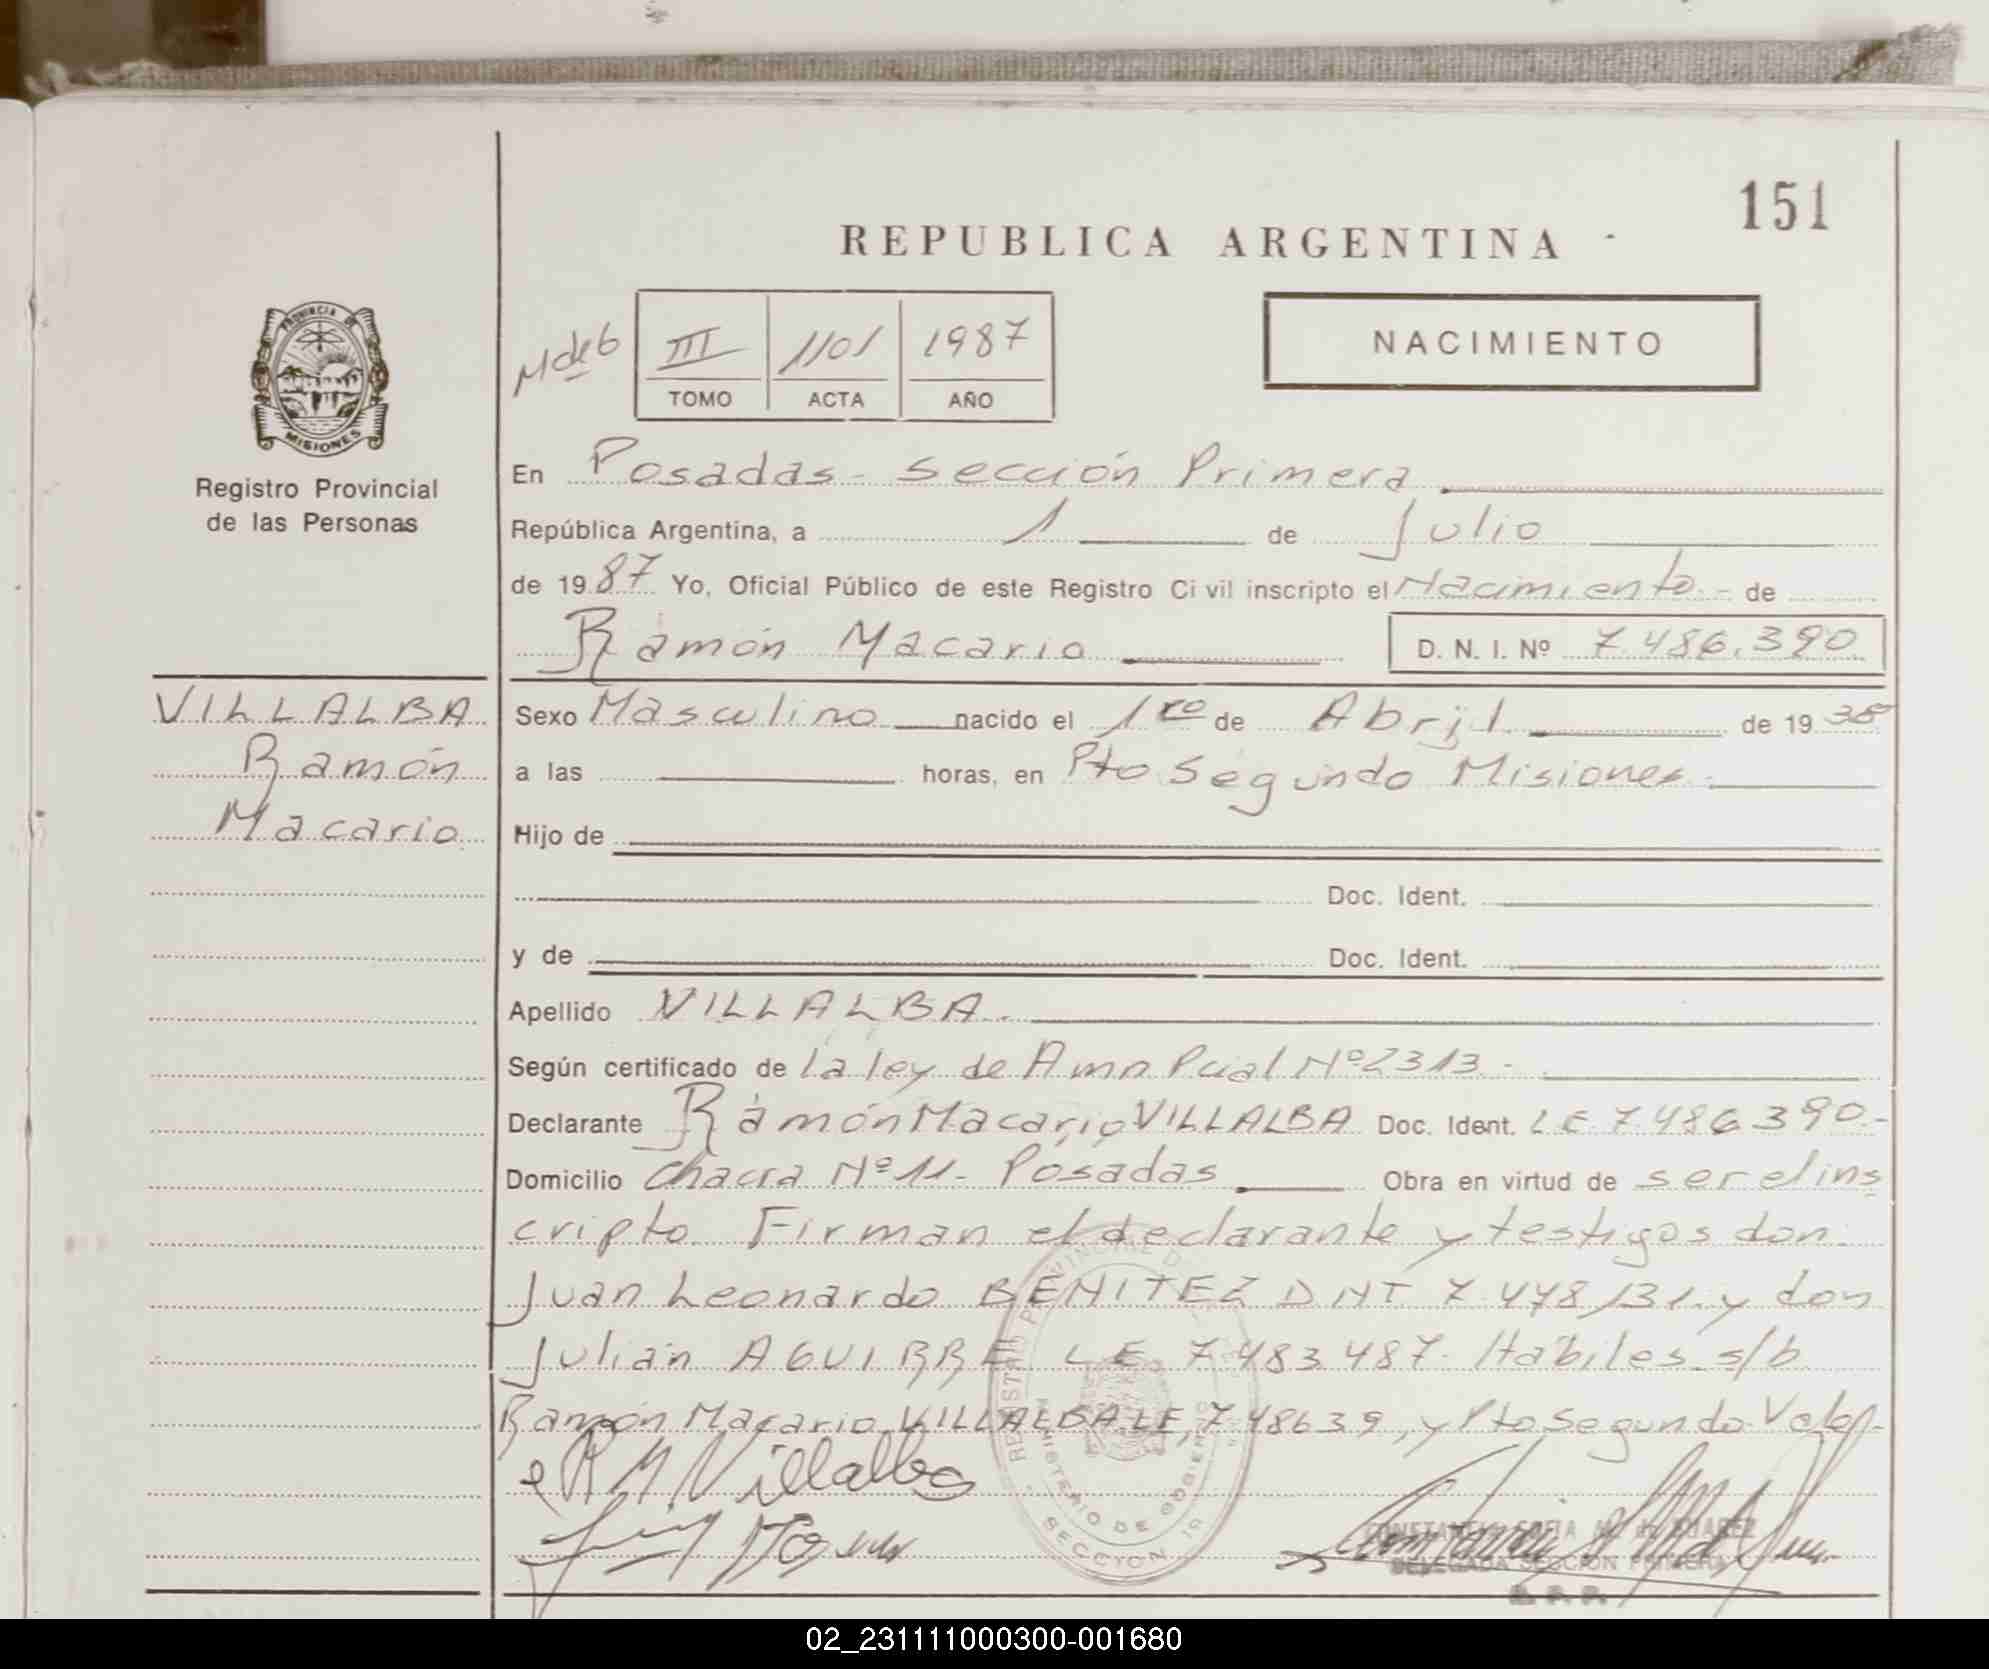 151
REPUBLICA ARGENTINA
PROVINCIA DE
MISIONES
Registro Provincial
de las Personas
III 1101 1987
TOMO ACTA AÑO
NACIMIENTO
En Posadas - Sección Primera
República Argentina, a 1 de Julio
de 1987 Yo, Oficial Público de este Registro Civil inscripto el Nacimiento - de
Ramón Macario D. N. I. Nº 7.486.390
VILLALBA
Ramón
Macario
Sexo Masculino nacido el 1ro de Abril de 19 38
a las horas, en Pto Segundo Misiones.
Hijo de
Doc. Ident.
y de Doc. Ident.
Apellido VILLALBA.
Según certificado de la ley de Amn Pcial Nº 2313 -
Declarante Ramón Macario VILLALBA Doc. Ident. LE 7.486.390.-
Domicilio Chacra Nº 11 - Posadas Obra en virtud de ser el ins
cripto. Firman el declarante y testigos don:
Juan Leonardo BENITEZ DNI 7.478.131. y don
Julián AGUIRRE LE 7.483.487. Hábiles s/b
Ramón Macario VILLALBA LE, 7.48639, y Pto Segundo Valen-
R M Villalba
REGISTRO PROVINCIAL DE
MINISTERIO DE GOBIERNO
SECCION 1a
DELEGADA SECCION PRIMERA
02_231111000300-001680